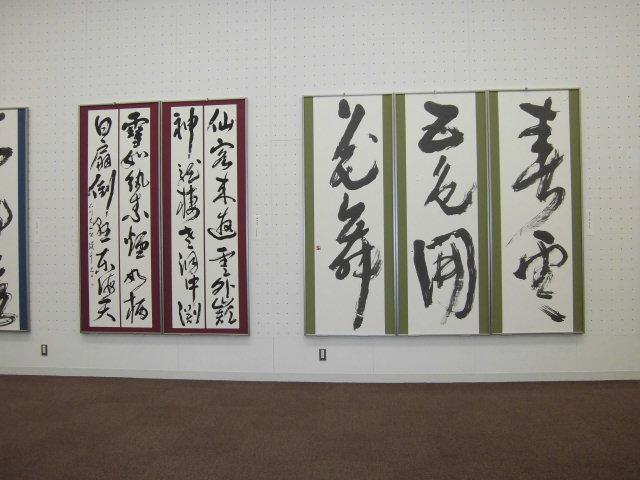 春雲
五色開
花舞
仙客来遊雲外巓
神龍棲老洞中淵
雪如紈素煙如柄
白扇倒懸東海天